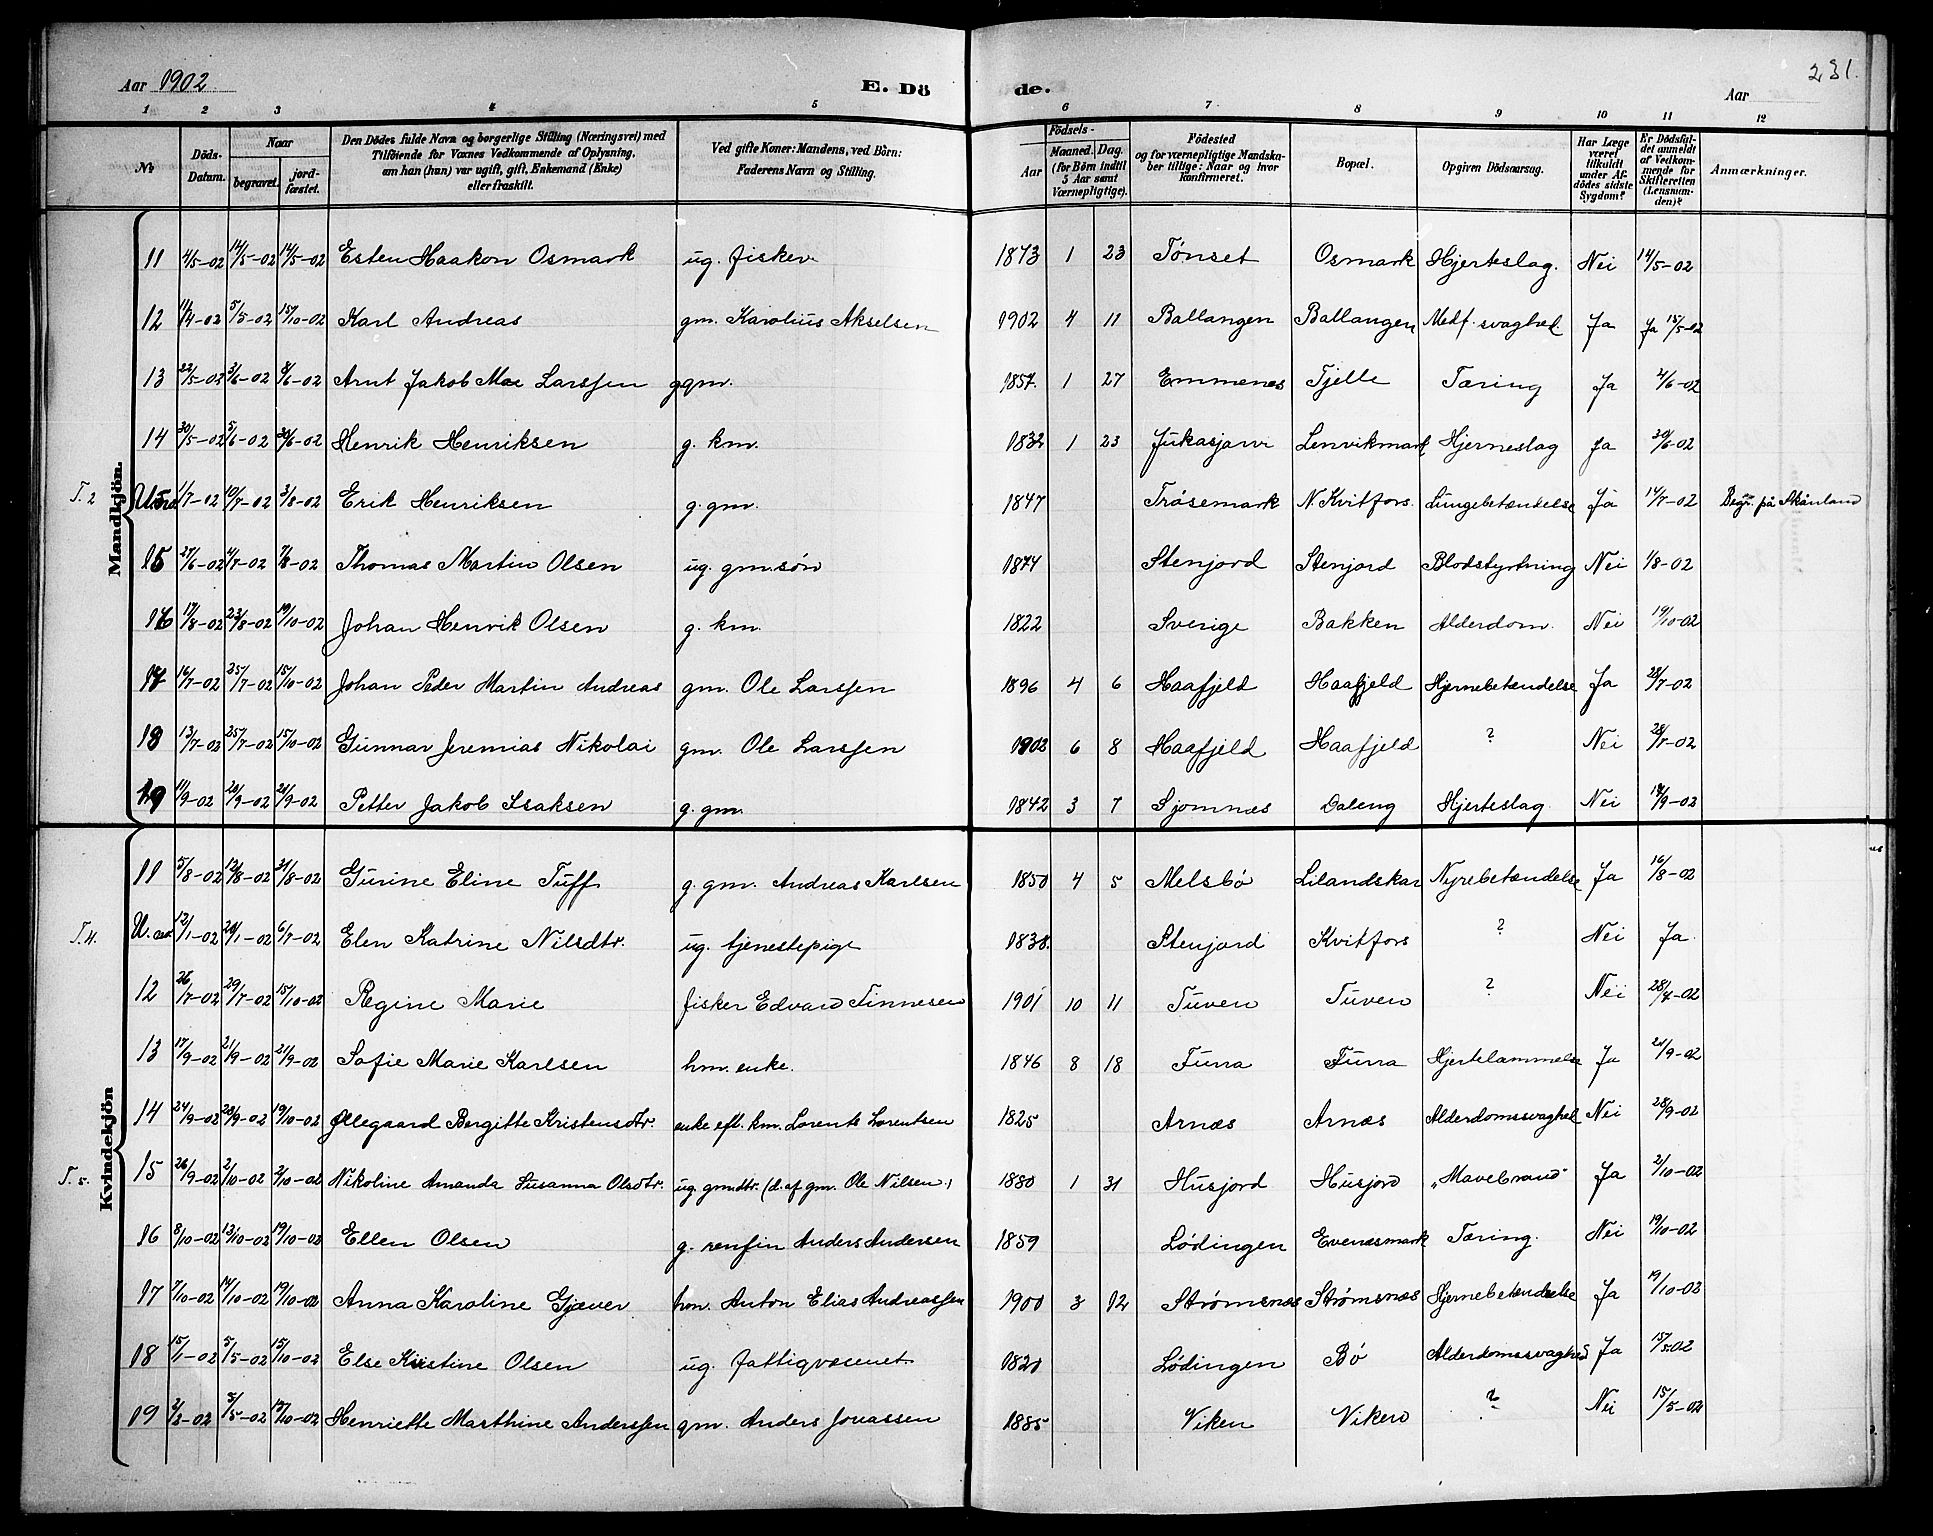 Aar 1902. E. Dö de. Aar 231.
1 2 3 4 5 6 7 8 9 10 11 12
No
Döds-Datum.
Naar
begravet.
jord-fæstet.
Den Dödes fulde Navn og borgerlige Stilling (Næringsvei) med
Tilföiende for Voxnes Vedkommende af Oplysning,
om han (hun) var ugift, gift, Enkemand (Enke)
eller fraskilt.
Ved gifte Koner: Mandens, ved Börn:
Faderens Navn og Stilling.
Födsels-
Aar
Maaned. Dag.
(for Börn indtil
5 Aar samt
Værnepligtige).
Födested
og for værnepligtige Mandskaber tillige: Naar og hvor
konfirmeret.
Bopæl.
Opgiven Dödsaarsag.
Har Læge
været
tilkaldt
under Afdödes sidste
Sygdom?
Er Dödsfaldet anmeldt
af Vedkommende for
Skifteretten
(Lensmanden)?
Anmærkninger.
Mandkjön.
11 4/5-02 14/5-02 14/5-02 Esten Haakon Osmark ug. fisker 1873 1 23 Tønset Osmark Hjerteslag. Nei 14/5-02
12 11/4-02 5/5-02 15/10-02 Karl Andreas gm. Karolius Akselsen 1902 4 11 Ballangen Ballangen Medf. svaghed. Ja Ja 15/5-02
13 22/5-02 3/6-02 8/6-02 Arnt Jakob Larssen ggm. 1857. 1 27 Emmenes Tjelle Tæring Ja 2/6-02
14 30/5-02 5/6-02 30/6-02 Henrik Henriksen g. km. 1832 1 23 Jukasjarvi Lenvikmark Hjerneslag Ja 30/6-02
T. 2 1/7-02 10/7-02 3/8-02 Erik Henriksen g. gm. 1847 Trøsemark N. Kvitfors. Lungebetændelse Ja 14/7-02 Begr. på Skånland
15 27/6-02 4/7-02 7/8-02 Thomas Martin Olsen ug. gm.søn 1874 Stenjord Stenjord Blodstyrtning Nei 1/8-02
16 17/8-02 23/8-02 19/10-02 Johan Henrik Olsen g. km. 1822 Sverige Bakken Alderdom. Nei 19/10-02
17 16/7-02 25/7-02 15/10-02 Johan Peder Martin Andreas gm. Ole Larssen 1896 4 6 Haafjeld Haafjeld Hjernebetændelse Ja 28/7-02
18 13/7-02 25/7-02 15/10-02 Gunnar Jeremias Nikolai gm. Ole Larssen 1902 6 8 Haafjeld Haafjeld ? Nei 28/7-02
19 11/9-02 20/9-02 20/9-02 Petter Jakob Isaksen g. gm. 1842 3 7 Sjomnæs Daleng Hjerteslag. Nei 19/9-02
Kvindekjön
11 5/8-02 12/8-02 31/8-02 Gurine Eline Tuff g. gm. Andreas Karlsen 1850 4 5 Melsbö Lilandskar Nyrebetændelse Ja 16/8-02
T. 4. 12/1-02 20/1-02 6/7-02 Elen Katrine Nilsdtr. ug. tjenestepige 1838. Stenjord Kvitfors ? Nei Ja.
12 26/7-02 29/7-02 15/10-02 Regine Marie fisker Edvard Finnesen 1901 10 11 Tuven Tuven ? Nei 28/7-02
13 17/9-02 21/9-02 21/9-02 Sofie Marie Karlsen hm. enke. 1846 8 18 Furra Furra Hjertelammelse Ja 21/9-02
14 24/9-02 28/9-02 19/10-02 Ollegaard Bergitte Kristensdtr. enke eft. km. Lorents Lorentsen 1825 Arnæs Arnæs Alderdomssvaghed Nei 28/9-02
T. 5. 15 26/9-02 2/10-02 2/10-02 Nikoline Amanda Susanna Olsdtr. ug. gmdtr. (d. af gm. Ole Nilsen.) 1880 1 31 Husjord Husjord „Mavebrand" Ja 2/10-02
16 8/10-02 13/10-02 19/10-02 Ellen Olsen g. renfin Anders Andersen 1859 Lødingen Evenæsmark Tæring. Nei 19/10-02
17 7/10-02 14/10-02 19/10-02 Anna Karoline Gjæver hm. Anton Elias Andreassen 1900 3 12 Strømsnes Strømsnæs Hjernebetændelse Ja 19/10-02
18 15/1-02 5/5-02 15/10-02 Else Kristine Olsen ug. fattigvæsenet 1820 Lødingen Bø Alderdomssvaghed Ja 15/5 02
19 2/3-02 5/5-02 15/10-02 Henriette Marthine Anderssen gm. Anders Jonassen 1885 Viken Viken ? Nei 15/5-02